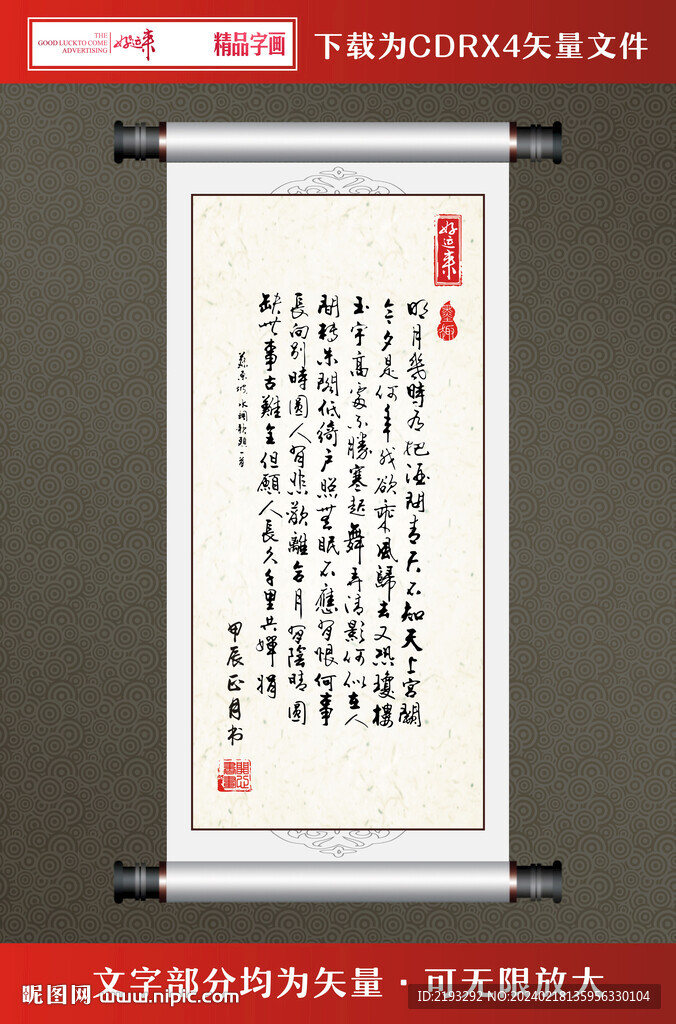 THE
GOOD LUCK TO COME
ADVERTISING
好运来
精品字画
下载为CDRX4矢量文件
好运来
明月幾時有把酒問青天不知天上宮闕
今夕是何年我欲乘風歸去又恐瓊樓
玉宇高處不勝寒起舞弄清影何似在人
間轉朱閣低綺户照無眠不應有恨何事
長向别時圓人有悲歡離合月有陰晴圓
缺此事古難全但願人長久千里共嬋娟
蘇東坡水調歌頭一首
甲辰正月书
文字部分均为矢量·可无限放大
昵图网 www.nipic.com
ID:2193292 NO:20240218135956330104